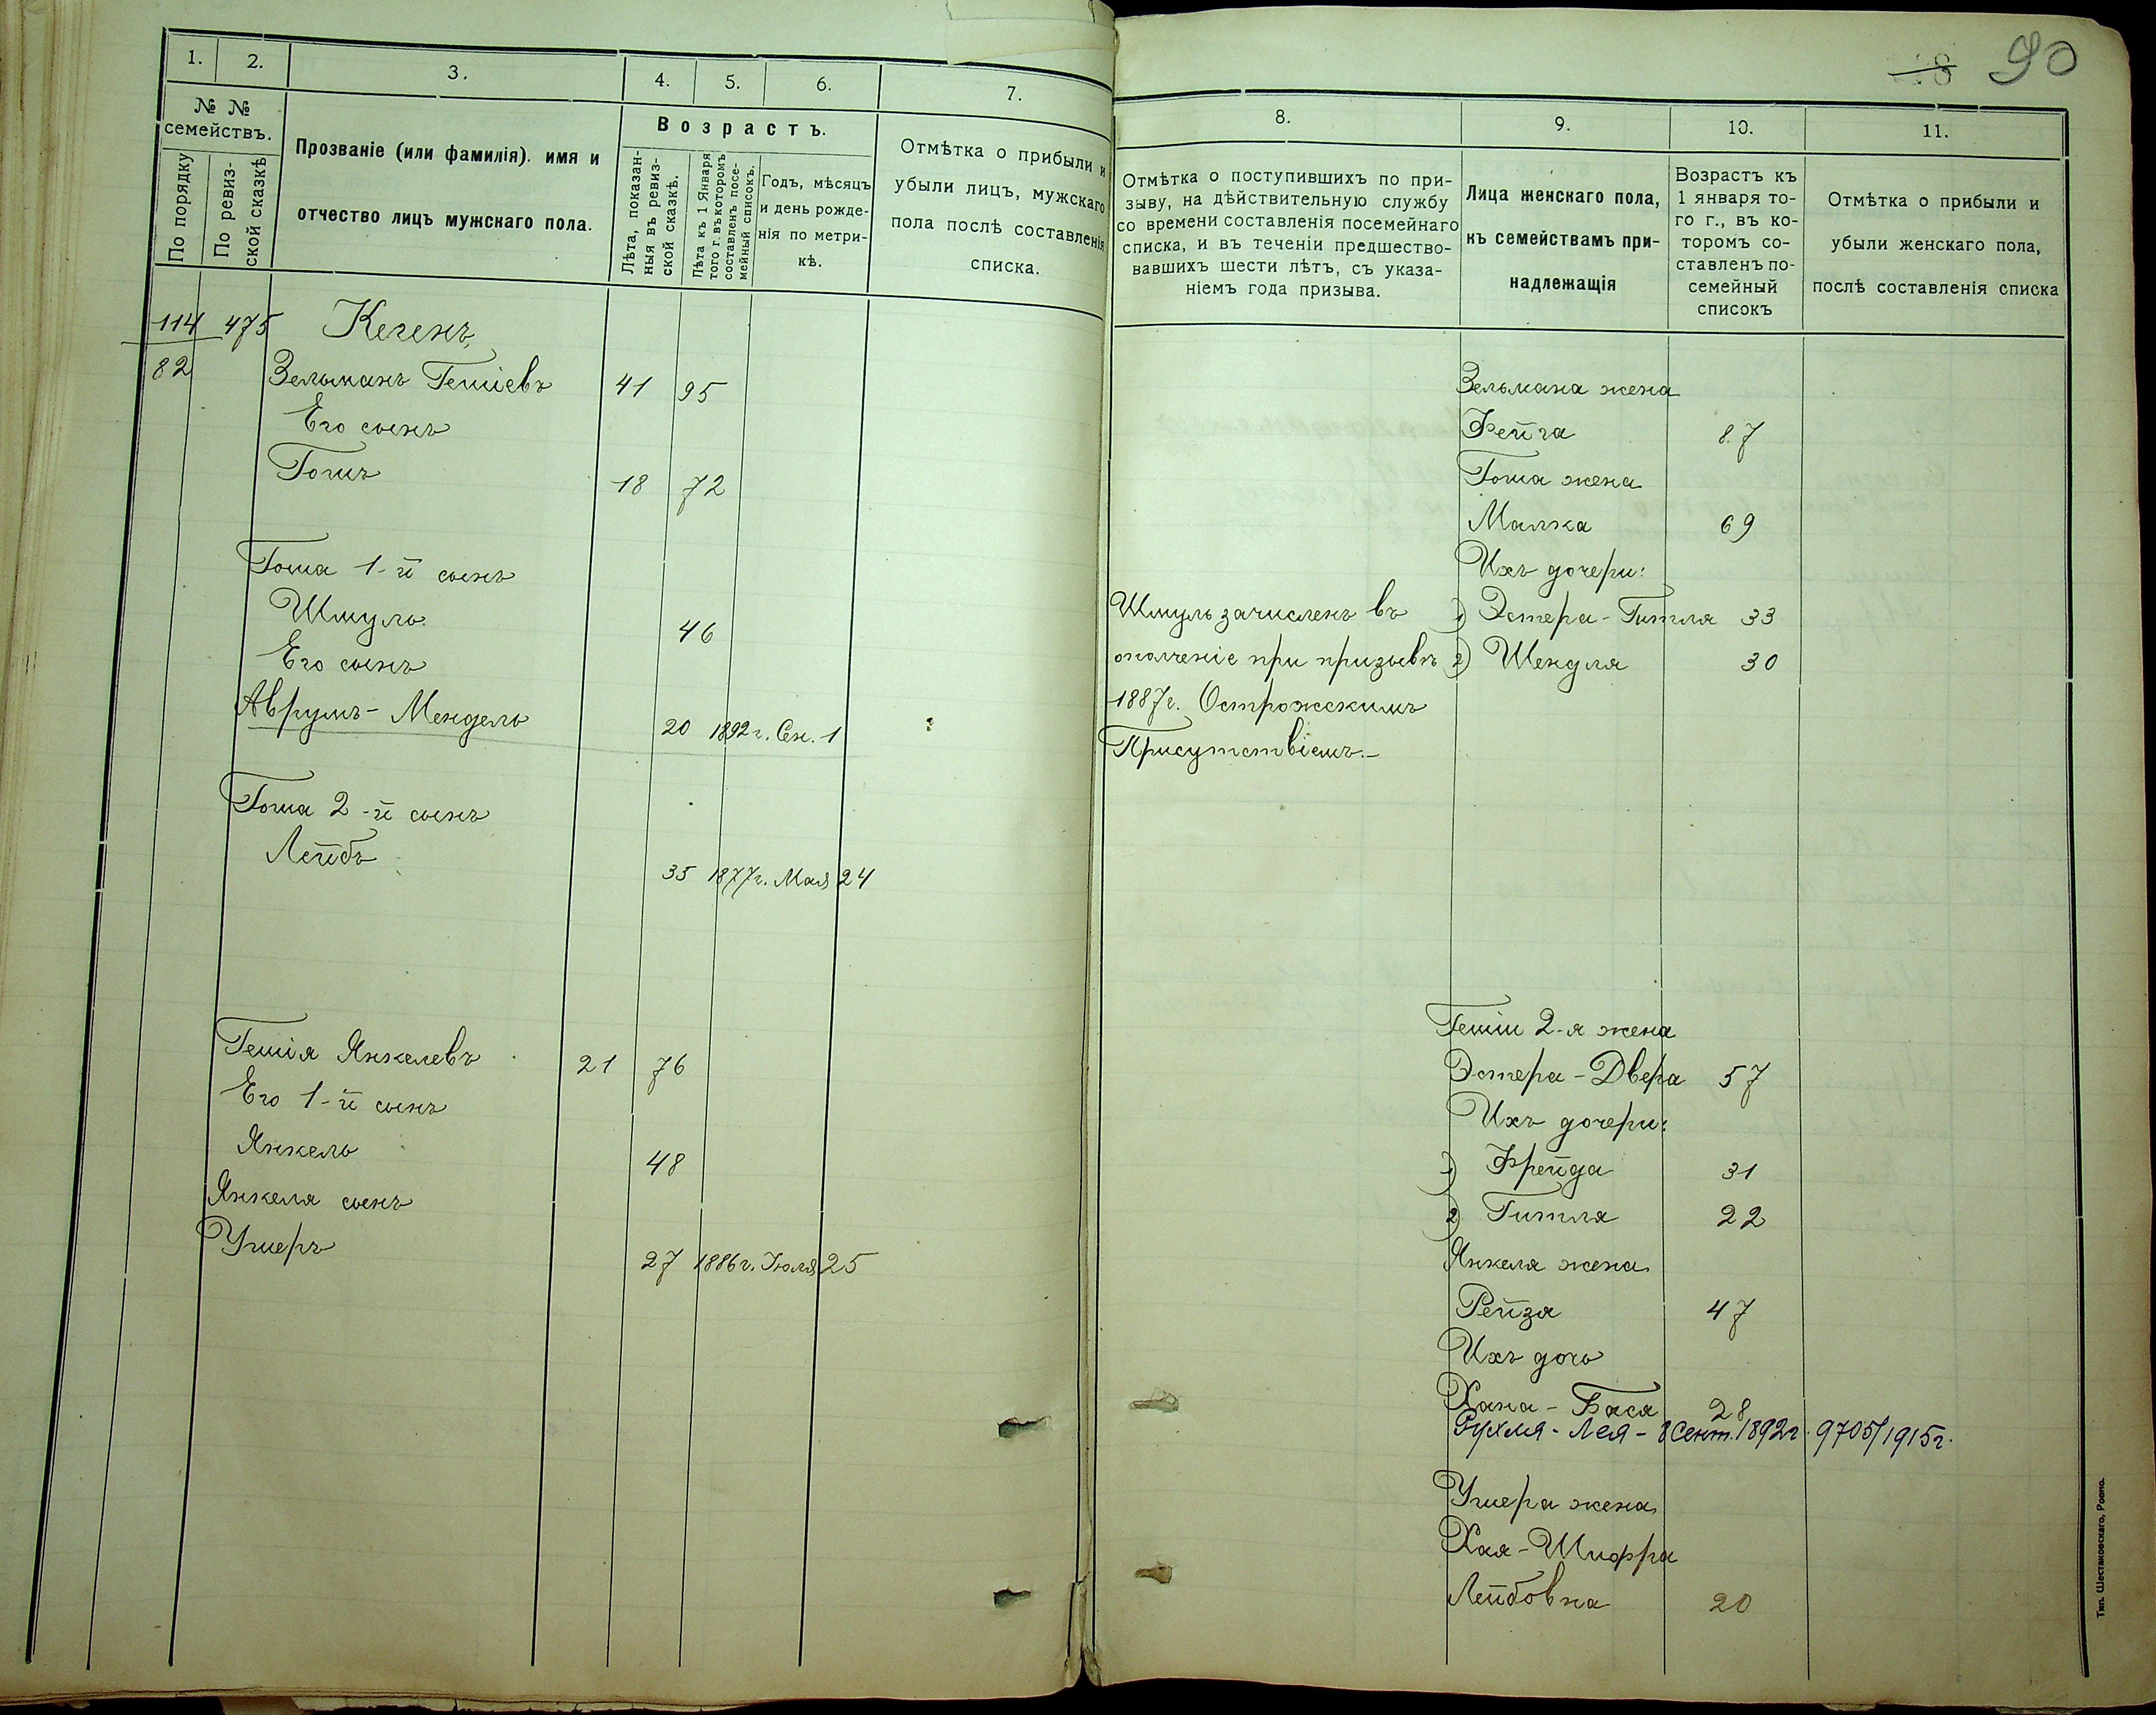 1. 2. 3. 4. 5. 6. 7.
№ №
семействъ.
По порядку
По ревиз-
ской сказкѣ
Прозваніе (или фамилія). имя и
отчество лицъ мужскаго пола.
Возрастъ.
Лѣта, показан-
ныя въ ревиз-
ской сказкѣ.
Лѣта къ 1 Января
того г. въ которомъ
составленъ посе-
мейный списокъ.
Годъ, мѣсяцъ
и день рожде-
нія по метри-
кѣ.
Отмѣтка о прибыли и
убыли лицъ, мужскаго
пола послѣ составленія
списка.
114 475 Кегенъ
82 Зельманъ Гешіевъ 41 95
Его сынъ
Гошъ 18 72
Гоша 1-й сынъ
Шмуль 46
Его сынъ
Аврумъ-Мендель 20 1892 г. Сен. 1
Гоша 2-й сынъ
Лейбъ 35 1877 г. Мая 24
Гешія Янкелевъ 21 76
Его 1-й сынъ
Янкель 48
Янкеля сынъ
Ушеръ 27 1886 г. Іюля 25
18 90
8. 9. 10. 11.
Отмѣтка о поступившихъ по при-
зыву, на дѣйствительную службу
со времени составленія посемейнаго
списка, и въ теченіи предшество-
вавшихъ шести лѣтъ, съ указа-
ніемъ года призыва.
Лица женскаго пола,
къ семействамъ при-
надлежащія
Возрастъ къ
1 января то-
го г., въ ко-
торомъ со-
ставленъ по-
семейный
списокъ
Отмѣтка о прибыли и
убыли женскаго пола,
послѣ составленія списка
Зельмана жена
Фейга 87
Гоша жена
Малка 69
Ихъ дочери:
Шмуль зачисленъ въ 1) Эстера-Гитля 33
ополченіе при призывѣ 2) Шендля 30
1887 г. Острожскимъ
Присутствіемъ.-
Гешіи 2-я жена
Эстера-Двера 57
Ихъ дочери:
1) Фрейда 31
2) Гитля 22
Янкеля жена
Рейзя 47
Ихъ дочь
Хана-Бася 28
Рухля-Лея-8 Сент. 1892 г. 9705/1915 г.
Ушера жена
Хая-Шифра
Лейбовна 20
Тип. Шестаковскаго, Ровно.